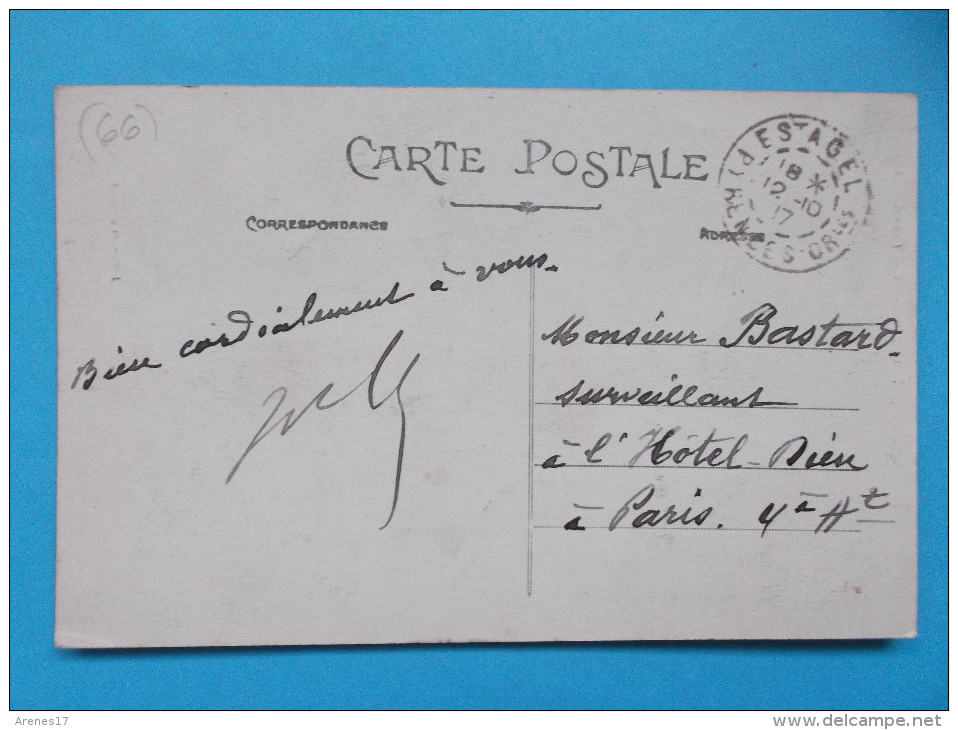 (66)
CARTE POSTALE
ESTAGEL
18 *
12 - 10
17
PYRENEES-ORles
CORRESPONDANCE
ADRESSE
Bien cordialement à vous.
Monsieur Bastard.
surveillant
à l'Hôtel-Dieu
à Paris. 4à At
Arenes17
www.delcampe.net